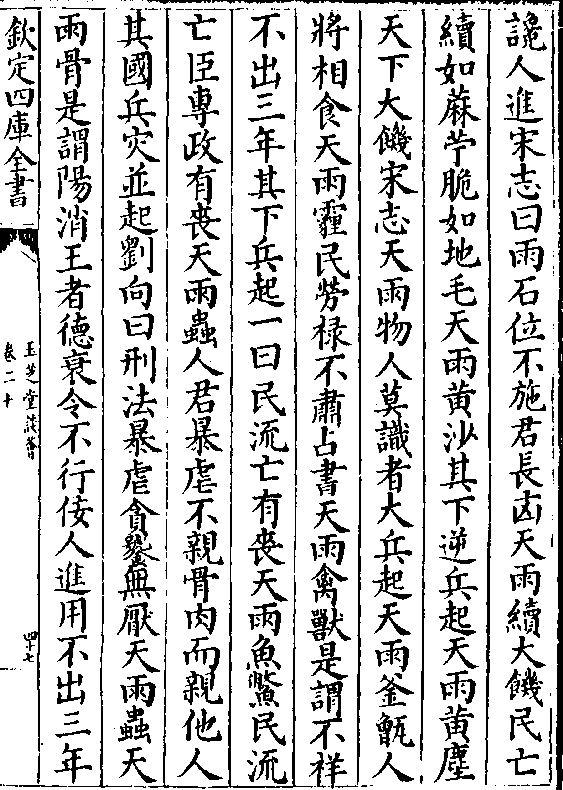 讒人進宋志曰雨石位不施君長凶天雨續大饑民亡
續如蔴苧脆如地毛天雨黄沙其下逆兵起天雨黄塵
天下大饑宋志天雨物人莫識者大兵起天雨釜甑人
將相食天雨霾民勞祿不肅占書天雨禽獸是謂不祥
不出三年其下兵起一曰民流亡有喪天雨魚鱉民流
亡臣專政有喪天雨蟲人君暴虐不親骨肉而親他人
其國兵灾並起劉向曰刑法暴虐貪饕無厭天雨蟲天
雨骨是謂陽消王者德衰令不行佞人進用不出三年
欽定四庫全書
玉芝堂談薈
卷二十
四十七